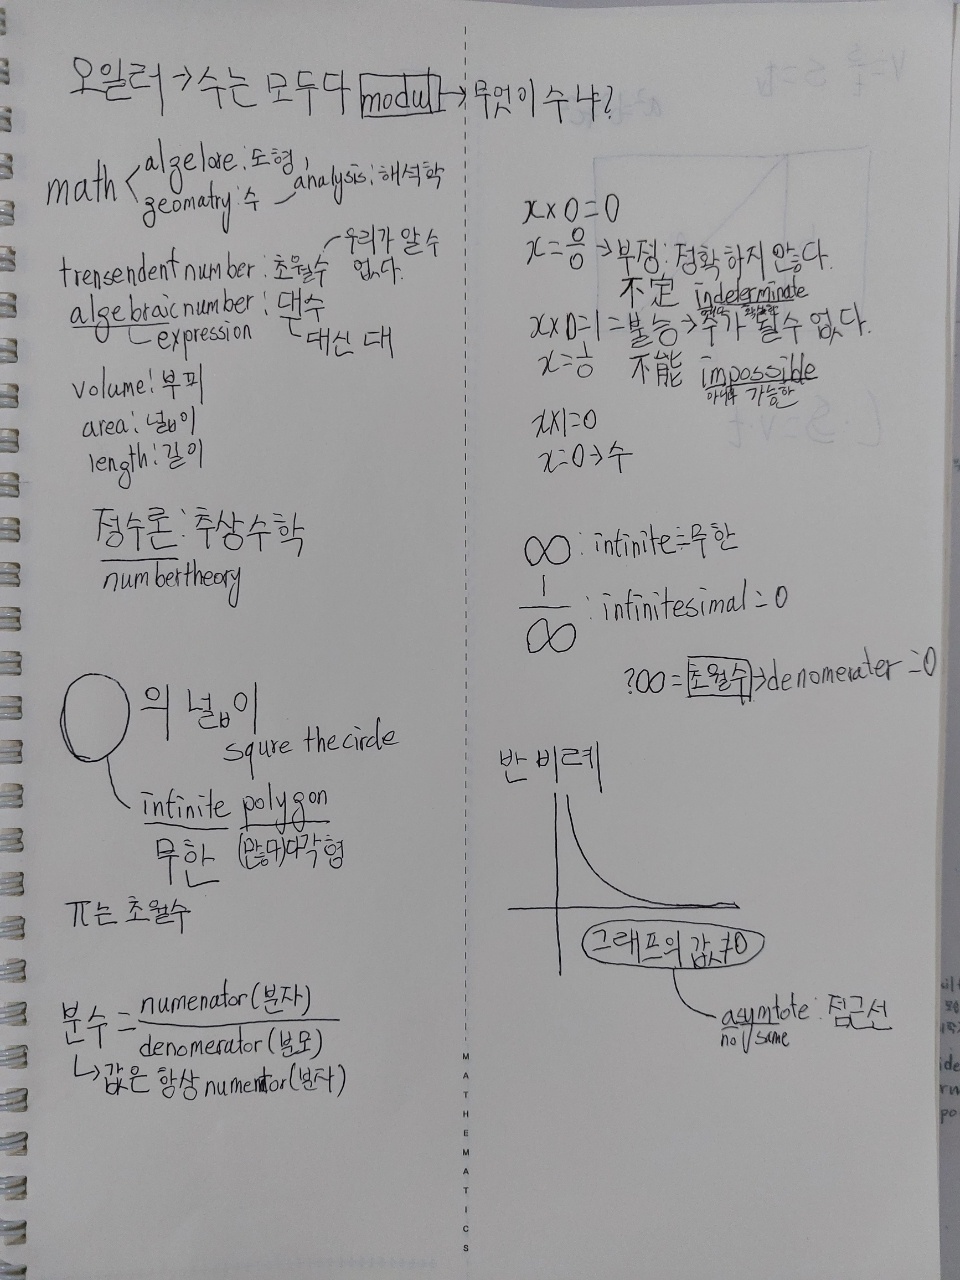 오일러→수는 모두다 modul→무엇이 수냐?
math < algelore: 도형, analysis: 해석학
geomatry: 수
trensendent number: 초월수 우리가 알 수 없다.
algebraic number: 대수
expression 대신 대
volume: 부피
area: 넓이
length: 길이
정수론: 추상수학
number theory
의 넓이
squre the circle
infinite polygon
무한 (많다)다각형
π는 초월수
분수 = numenator(분자)
denomerator(분모)
↳값은 항상 (분자)
x×0=0
x=0/0→부정: 정확하지 안놓다.
不定 indeterminate
x×0=1=불능→수가 될 수 없다.
x=1/0 不能 impossible
가능한
x×1=0
x=0→수
∞: infinite=무한
1/∞: infinitesimal=0
?00=초월수→denomerater=0
반비례
그래프의 값≠0
asymtote: 점근선
no same
MATHEMATICS